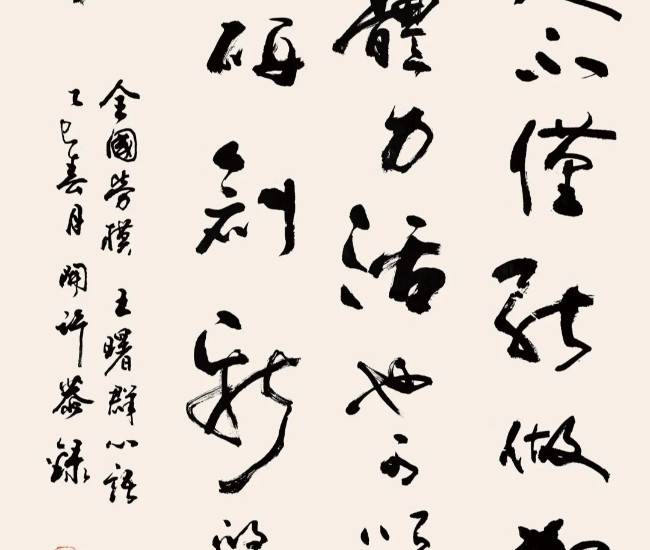 不僅能做
體力活也可以
研創新的
全國勞模 王曙群心語
乙巳春月開許恭錄